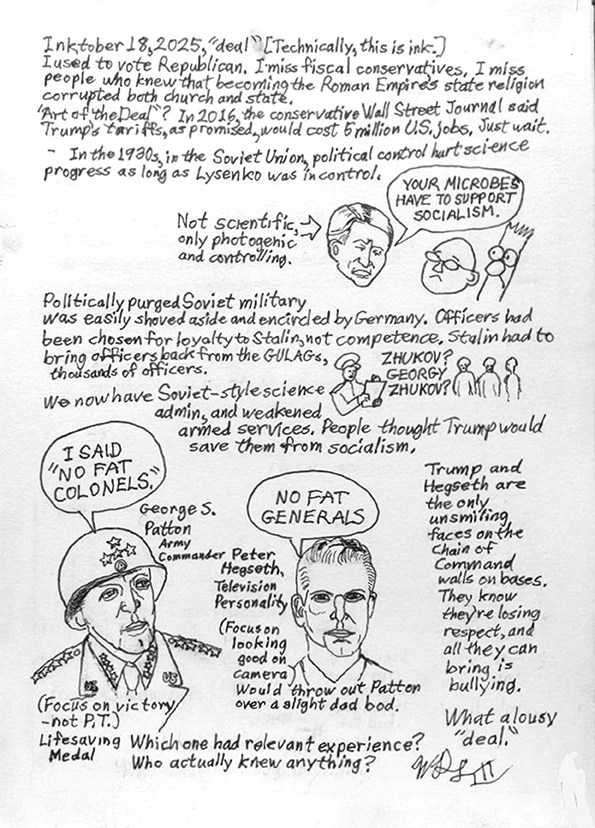 Inktober 18, 2025, "deal" [Technically, this is ink.]
I used to vote Republican. I miss fiscal conservatives, I miss
people who knew that becoming the Roman Empire's state religion
corrupted both church and state.
"Art of the Deal"? In 2016, the conservative Wall Street Journal said
Trump's tariffs, as promised, would cost 5 million U.S. jobs. Just wait.
- In the 1930s, in the Soviet Union, political control hurt science
progress as long as Lysenko was in control.
YOUR MICROBES
HAVE TO SUPPORT
SOCIALISM.
Not scientific,
only photogenic
and controlling.
Politically purged Soviet military
was easily shoved aside and encircled by Germany. Officers had
been chosen for loyalty to Stalin, not competence. Stalin had to
bring officers back from the GULAGs,
thousands of officers.
ZHUKOV?
GEORGY
ZHUKOV?
We now have Soviet-style science
admin, and weakened
armed services. People thought Trump would
save them from socialism.
I SAID
"NO FAT
COLONELS."
George S.
Patton
Army
Commander
NO FAT
GENERALS
Peter
Hegseth,
Television
Personality
(Focus on
looking
good on
camera)
Would throw out Patton
over a slight dad bod.
Trump and
Hegseth are
the only
unsmiling
faces on the
Chain of
Command
walls on bases.
They know
they're losing
respect, and
all they can
bring is
bullying.
What a lousy
"deal."
(Focus on victory
-not P.T.)
Lifesaving
Medal
Which one had relevant experience?
Who actually knew anything?